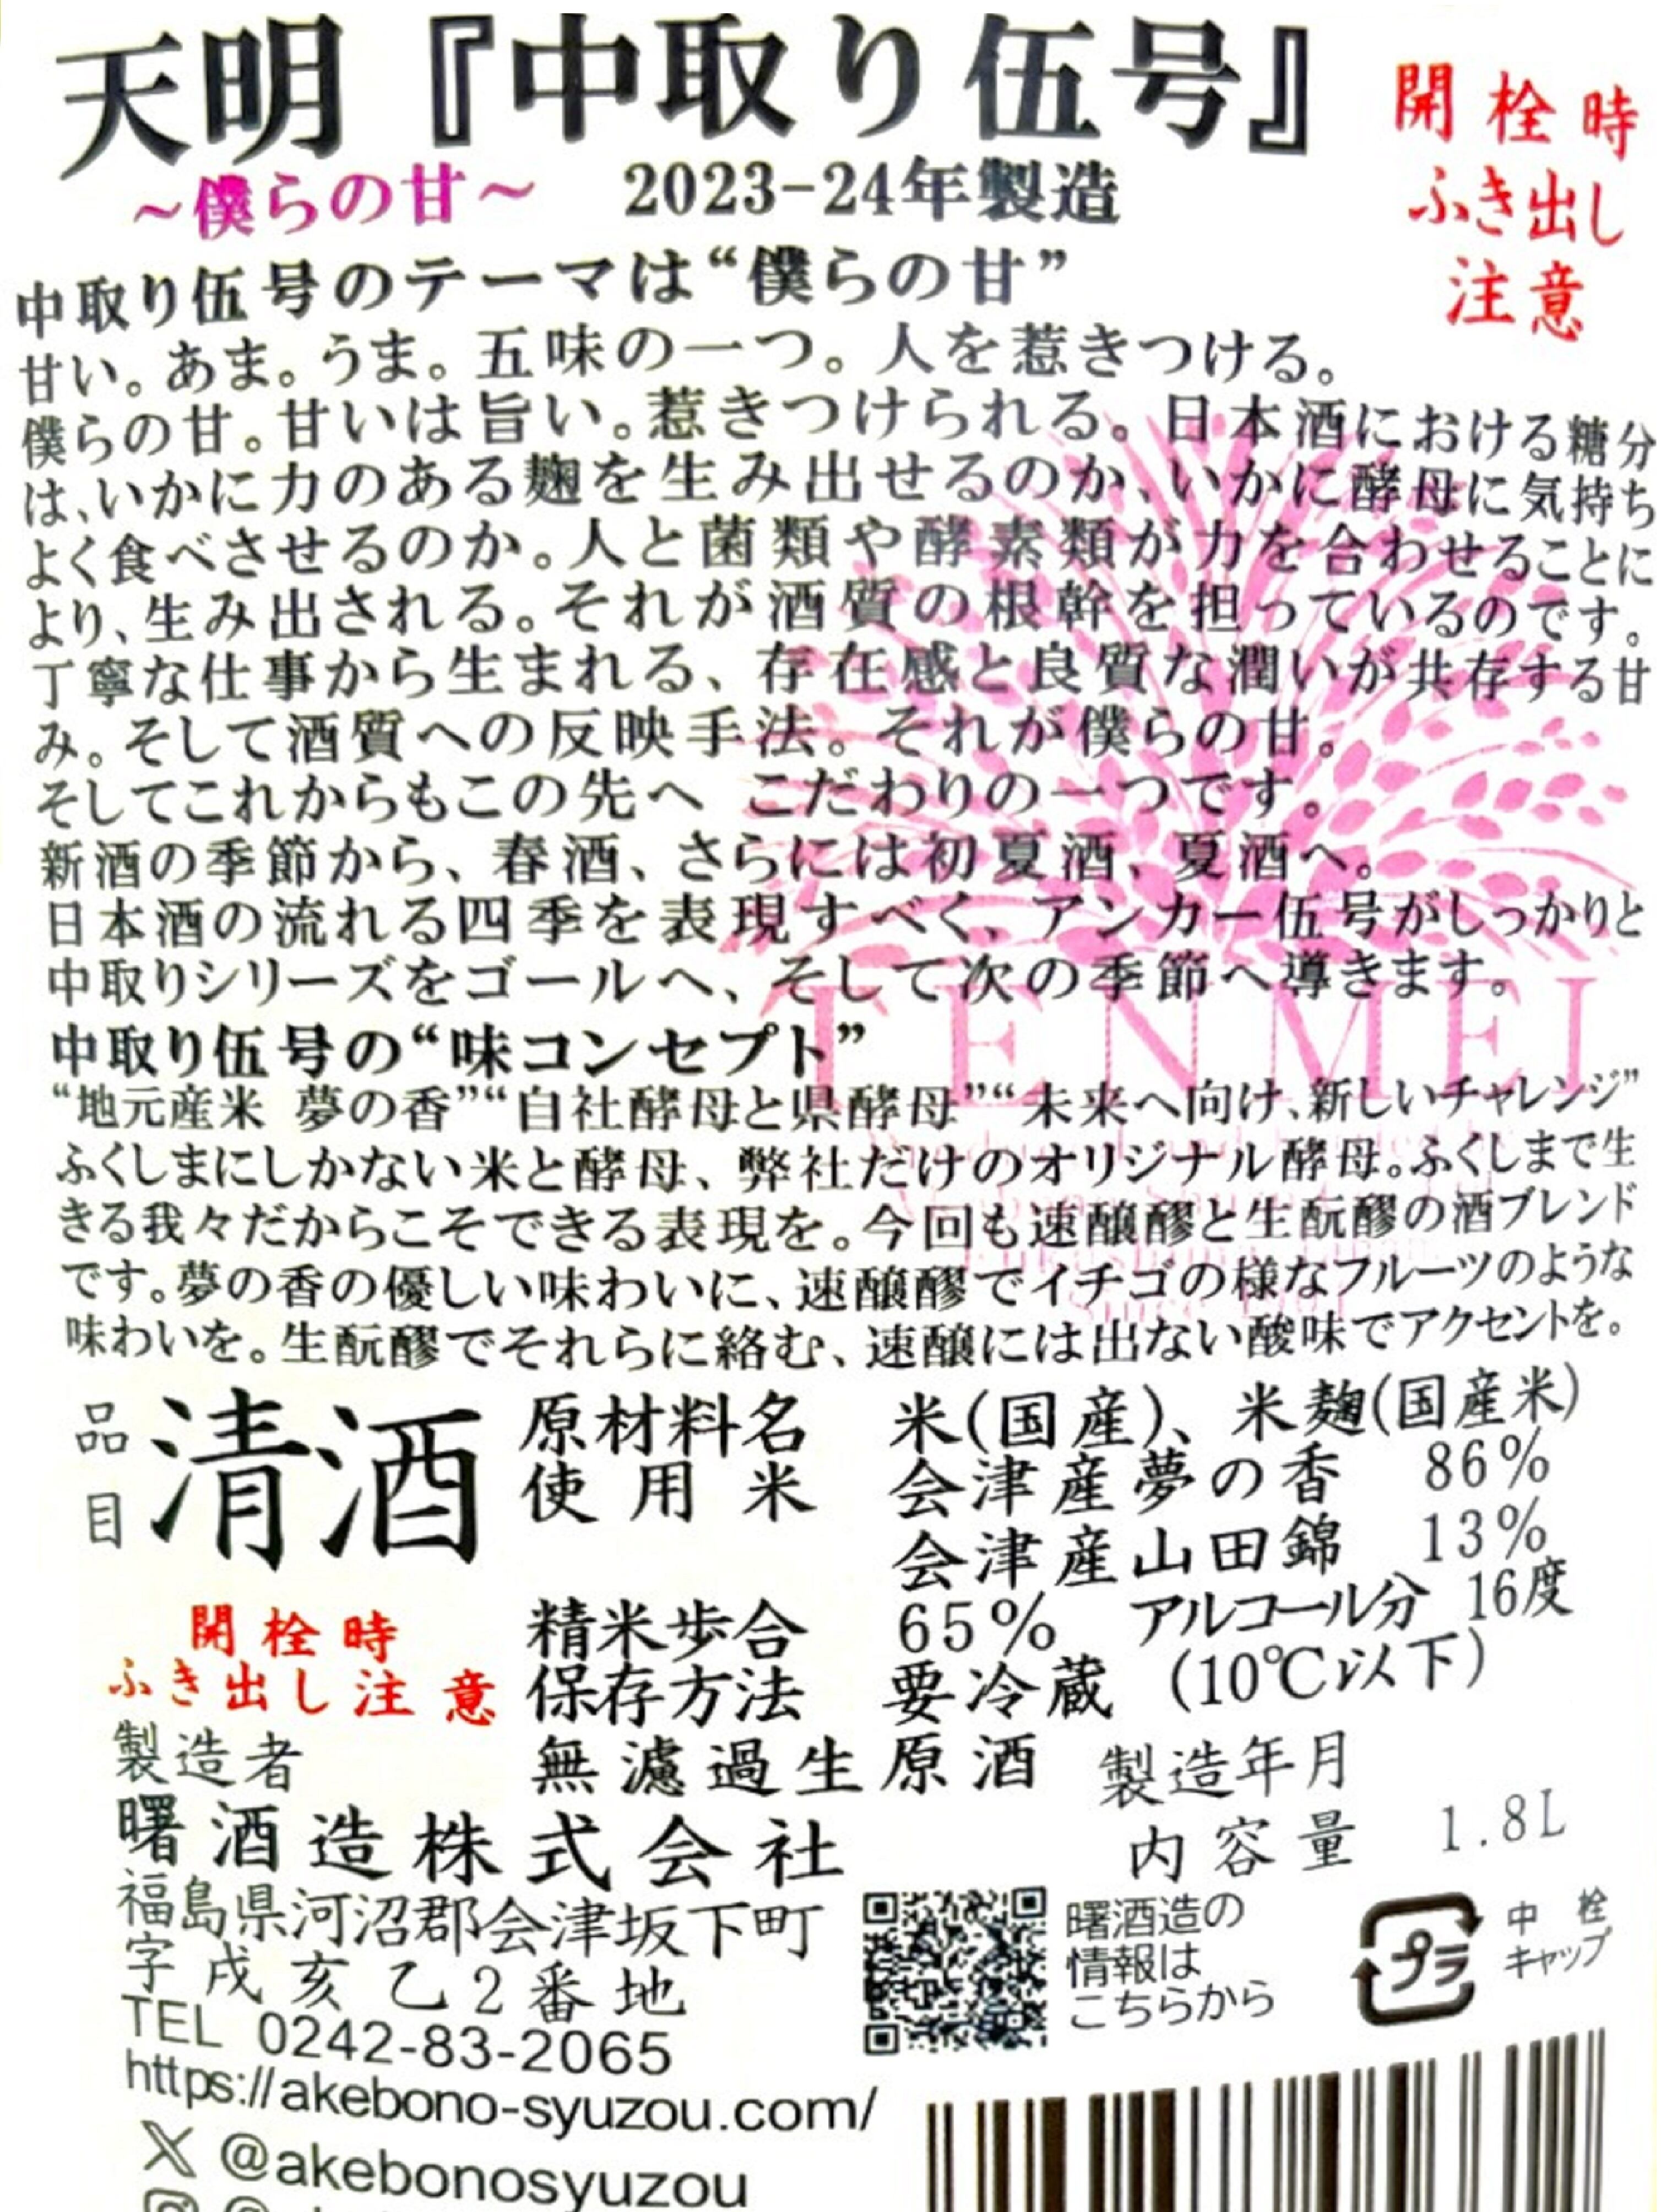 天明『中取り伍号』
開栓時
ふき出し
注意
~僕らの甘~ 2023-24年製造
中取り伍号のテーマは“僕らの甘”
甘い。あま。うま。五味の一つ。人を惹きつける。
僕らの甘。甘いは旨い。惹きつけられる。日本酒における糖分
は、いかに力のある麹を生み出せるのか、いかに酵母に気持ち
よく食べさせるのか。人と菌類や酵素類が力を合わせることに
より、生み出される。それが酒質の根幹を担っているのです。
丁寧な仕事から生まれる、存在感と良質な潤いが共存する甘
み。そして酒質への反映手法。それが僕らの甘。
そしてこれからもこの先へ こだわりの一つです。
新酒の季節から、春酒、さらには初夏酒、夏酒へ。
日本酒の流れる四季を表現すべく、アンカー伍号がしっかりと
中取りシリーズをゴールへ、そして次の季節へ導きます。
TENMEI
中取り伍号の“味コンセプト”
“地元産米 夢の香”“自社酵母と県酵母”“未来へ向け、新しいチャレンジ”
ふくしまにしかない米と酵母、弊社だけのオリジナル酵母。ふくしまで生
きる我々だからこそできる表現を。今回も速醸醪と生酛醪の酒ブレンド
です。夢の香の優しい味わいに、速醸醪でイチゴの様なフルーツのような
味わいを。生酛醪でそれらに絡む、速醸には出ない酸味でアクセントを。
品目 清酒
原材料名 米(国産)、米麹(国産米)
使用米 会津産夢の香 86%
会津産山田錦 13%
精米歩合 65% アルコール分 16度
保存方法 要冷蔵 (10℃以下)
開栓時
ふき出し注意
無濾過生原酒 製造年月
内容量 1.8L
製造者
曙酒造株式会社
福島県河沼郡会津坂下町
字戌亥乙2番地
TEL 0242-83-2065
https://akebono-syuzou.com/
X @akebonosyuzou
曙酒造の
情報は
こちらから
プラ
中栓
キャップ